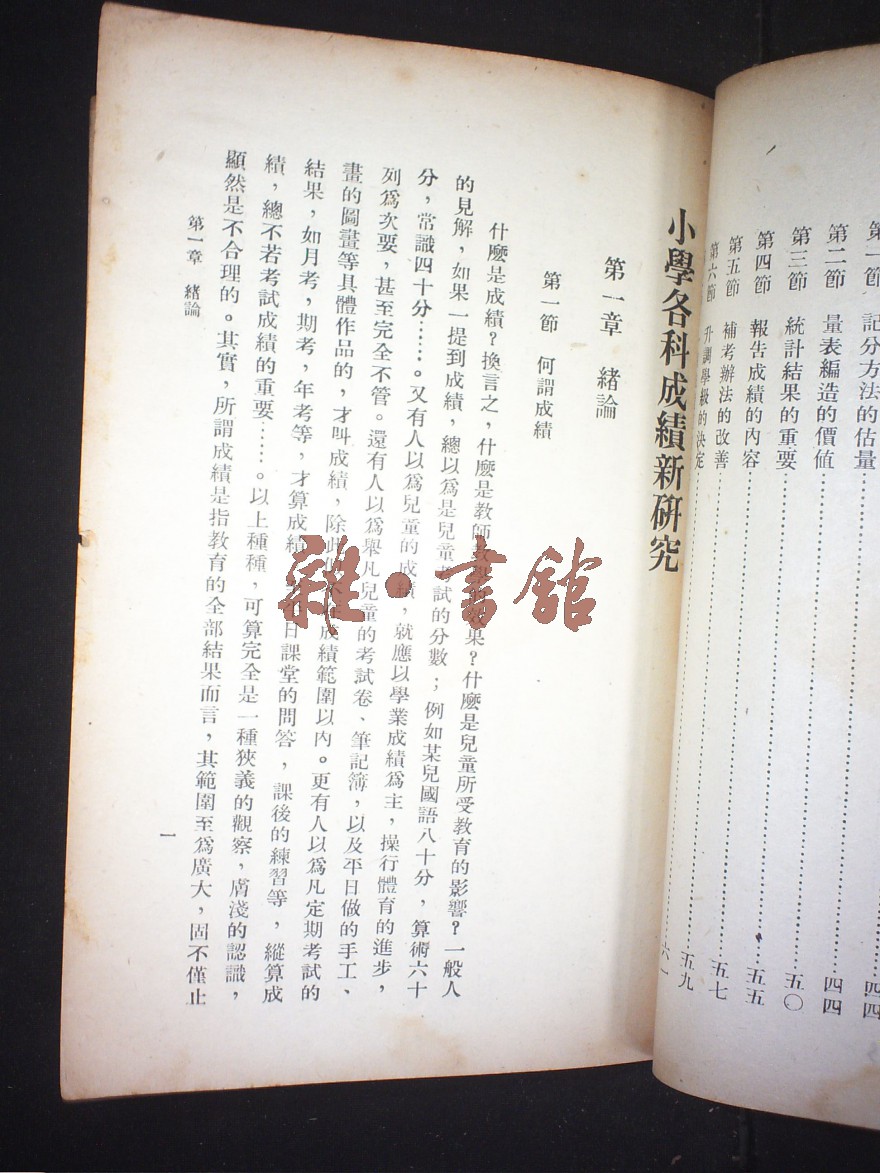 第一節 記分方法的估量……四四
第二節 量表編造的價値……四四
第三節 統計結果的重要……五〇
第四節 報告成績的內容……五五
第五節 補考辦法的改善……五七
第六節 升調學級的決定……五九
……六一
小學各科成績新研究
第一章 緒論
第一節 何謂成績
什麼是成績？換言之，什麼是教師教學的效果？什麼是兒童所受教育的影響？一般人
的見解，如果一提到成績，總以爲是兒童考試的分數；例如某兒國語八十分，算術六十
分，常識四十分……。又有人以爲兒童的成績，就應以學業成績爲主，操行體育的進步，
列爲次要，甚至完全不管。還有人以爲舉凡兒童的考試卷、筆記簿，以及平日做的手工、
畫的圖畫等具體作品的，才叫成績，除此 不在成績範圍以內。更有人以爲凡定期考試的
結果，如月考，期考，年考等，才算成績， 平日課堂的問答，課後的練習等，縱算成
績，總不若考試成績的重要……。以上種種，可算完全是一種狹義的觀察，膚淺的認識，
顯然是不合理的。其實，所謂成績是指教育的全部結果而言，其範圍至爲廣大，固不僅止
第一章 緒論
一
雜·書館